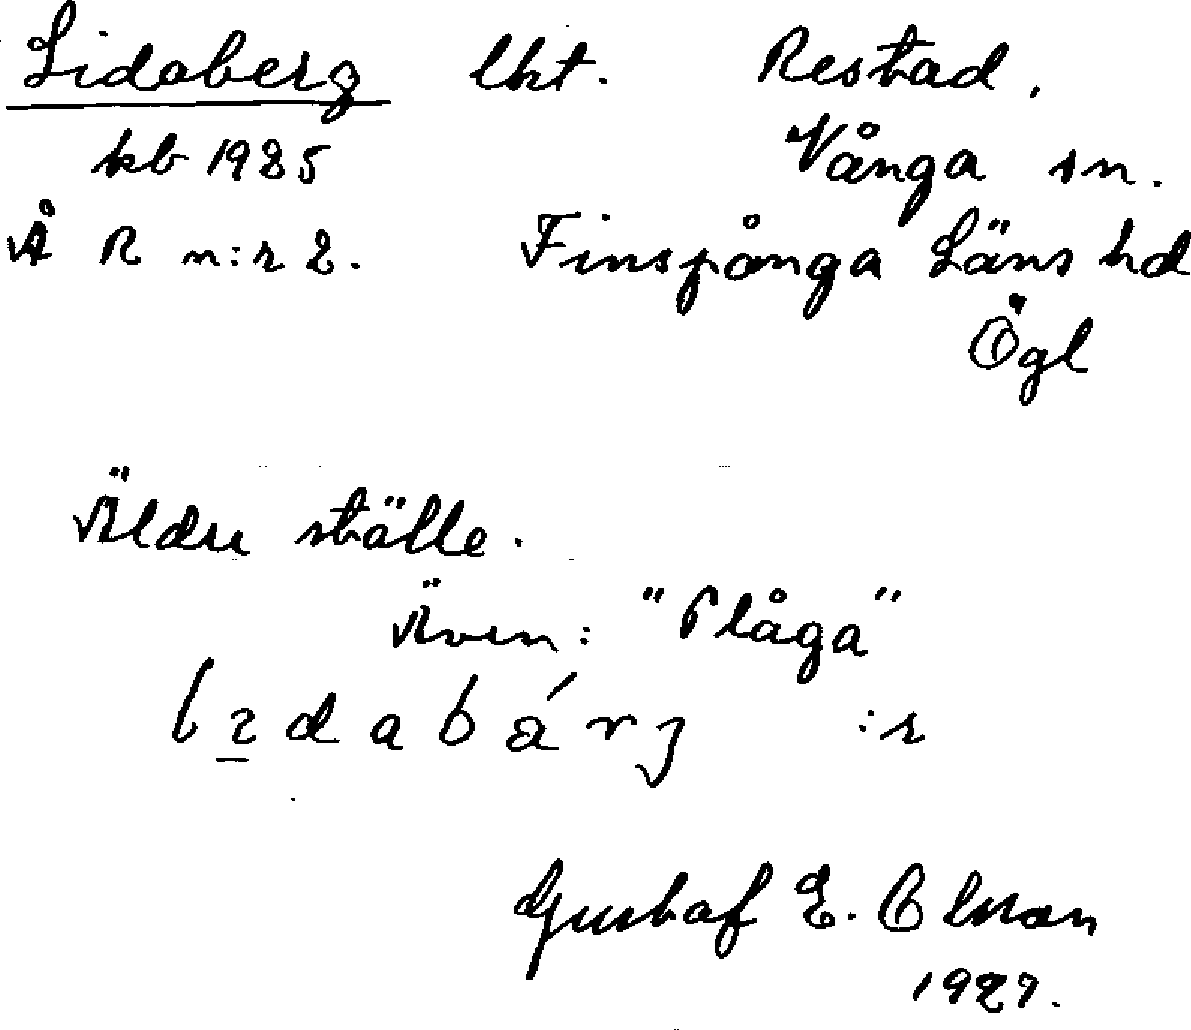 Lidaberg lht. Restad.
kb 1925 Vånga sn.
Å R n:r 2. Finspånga Läns hd
Ögl
Äldre ställe.
Även: "Plåga"
dabárj :r
Gustaf E. Olson
1927.